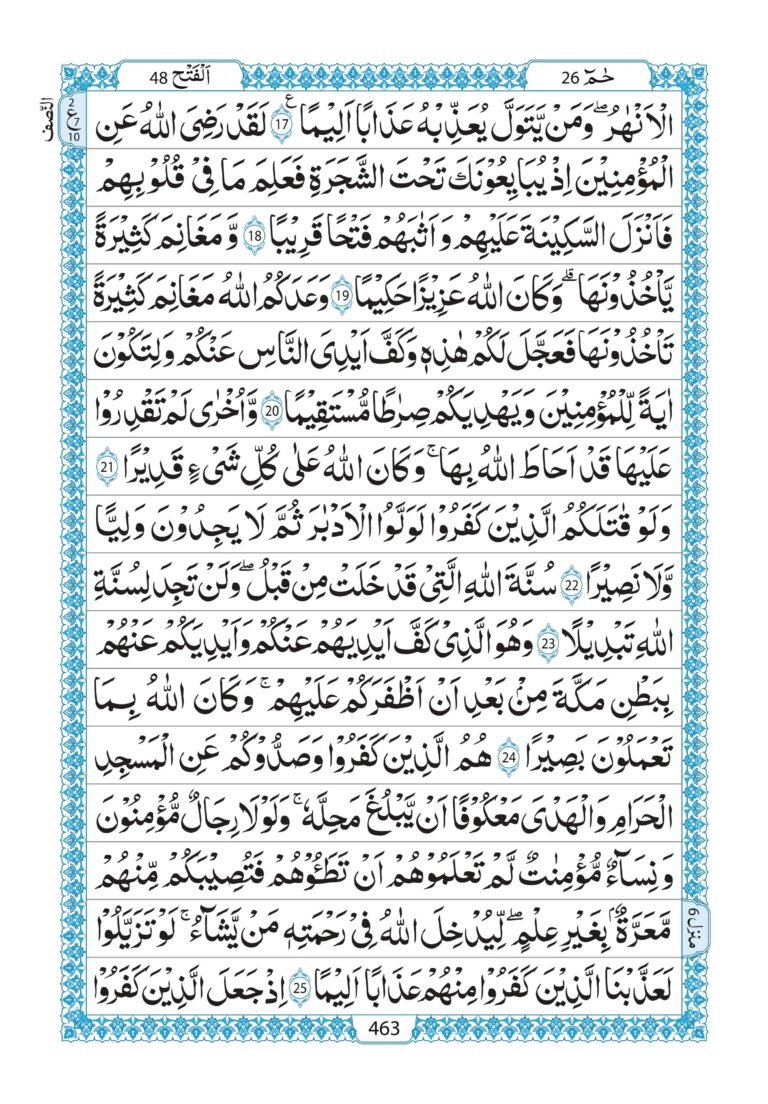 اَلْفَتْح 48
حٰمٓ 26
النّصف
الْاَنْهٰرُ ۖ وَمَنْ يَّتَوَلَّ يُعَذِّبْهُ عَذَابًا اَلِيْمًا ۧ 17 لَقَدْ رَضِيَ اللّٰهُ عَنِ
الْمُؤْمِنِيْنَ اِذْ يُبَايِعُوْنَكَ تَحْتَ الشَّجَرَةِ فَعَلِمَ مَا فِيْ قُلُوْبِهِمْ
فَاَنْزَلَ السَّكِيْنَةَ عَلَيْهِمْ وَاَثَابَهُمْ فَتْحًا قَرِيْبًا 18 وَّمَغَانِمَ كَثِيْرَةً
يَّاْخُذُوْنَهَا ۗ وَكَانَ اللّٰهُ عَزِيْزًا حَكِيْمًا 19 وَعَدَكُمُ اللّٰهُ مَغَانِمَ كَثِيْرَةً
تَاْخُذُوْنَهَا فَعَجَّلَ لَكُمْ هٰذِهٖ وَكَفَّ اَيْدِيَ النَّاسِ عَنْكُمْ وَلِتَكُوْنَ
اٰيَةً لِّلْمُؤْمِنِيْنَ وَيَهْدِيَكُمْ صِرٰطًا مُّسْتَقِيْمًا 20 وَّاُخْرٰى لَمْ تَقْدِرُوْا
عَلَيْهَا قَدْ اَحَاطَ اللّٰهُ بِهَا ۚ وَكَانَ اللّٰهُ عَلٰى كُلِّ شَيْءٍ قَدِيْرًا 21
وَلَوْ قٰتَلَكُمُ الَّذِيْنَ كَفَرُوْا لَوَلَّوُا الْاَدْبٰرَ ثُمَّ لَا يَجِدُوْنَ وَلِيًّا
وَّلَا نَصِيْرًا 22 سُنَّةَ اللّٰهِ الَّتِيْ قَدْ خَلَتْ مِنْ قَبْلُ ۖ وَلَنْ تَجِدَ لِسُنَّةِ
اللّٰهِ تَبْدِيْلًا 23 وَهُوَ الَّذِيْ كَفَّ اَيْدِيَهُمْ عَنْكُمْ وَاَيْدِيَكُمْ عَنْهُمْ
بِبَطْنِ مَكَّةَ مِنْۢ بَعْدِ اَنْ اَظْفَرَكُمْ عَلَيْهِمْ ۚ وَكَانَ اللّٰهُ بِمَا
تَعْمَلُوْنَ بَصِيْرًا 24 هُمُ الَّذِيْنَ كَفَرُوْا وَصَدُّوْكُمْ عَنِ الْمَسْجِدِ
الْحَرَامِ وَالْهَدْيَ مَعْكُوْفًا اَنْ يَّبْلُغَ مَحِلَّهٗ ۚ وَلَوْلَا رِجَالٌ مُّؤْمِنُوْنَ
وَنِسَآءٌ مُّؤْمِنٰتٌ لَّمْ تَعْلَمُوْهُمْ اَنْ تَطَـُٔوْهُمْ فَتُصِيْبَكُمْ مِّنْهُمْ
مَّعَرَّةٌۢ بِغَيْرِ عِلْمٍ ۖ لِّيُدْخِلَ اللّٰهُ فِيْ رَحْمَتِهٖ مَنْ يَّشَآءُ ۚ لَوْ تَزَيَّلُوْا
لَعَذَّبْنَا الَّذِيْنَ كَفَرُوْا مِنْهُمْ عَذَابًا اَلِيْمًا 25 اِذْ جَعَلَ الَّذِيْنَ كَفَرُوْا
منزل 6
463